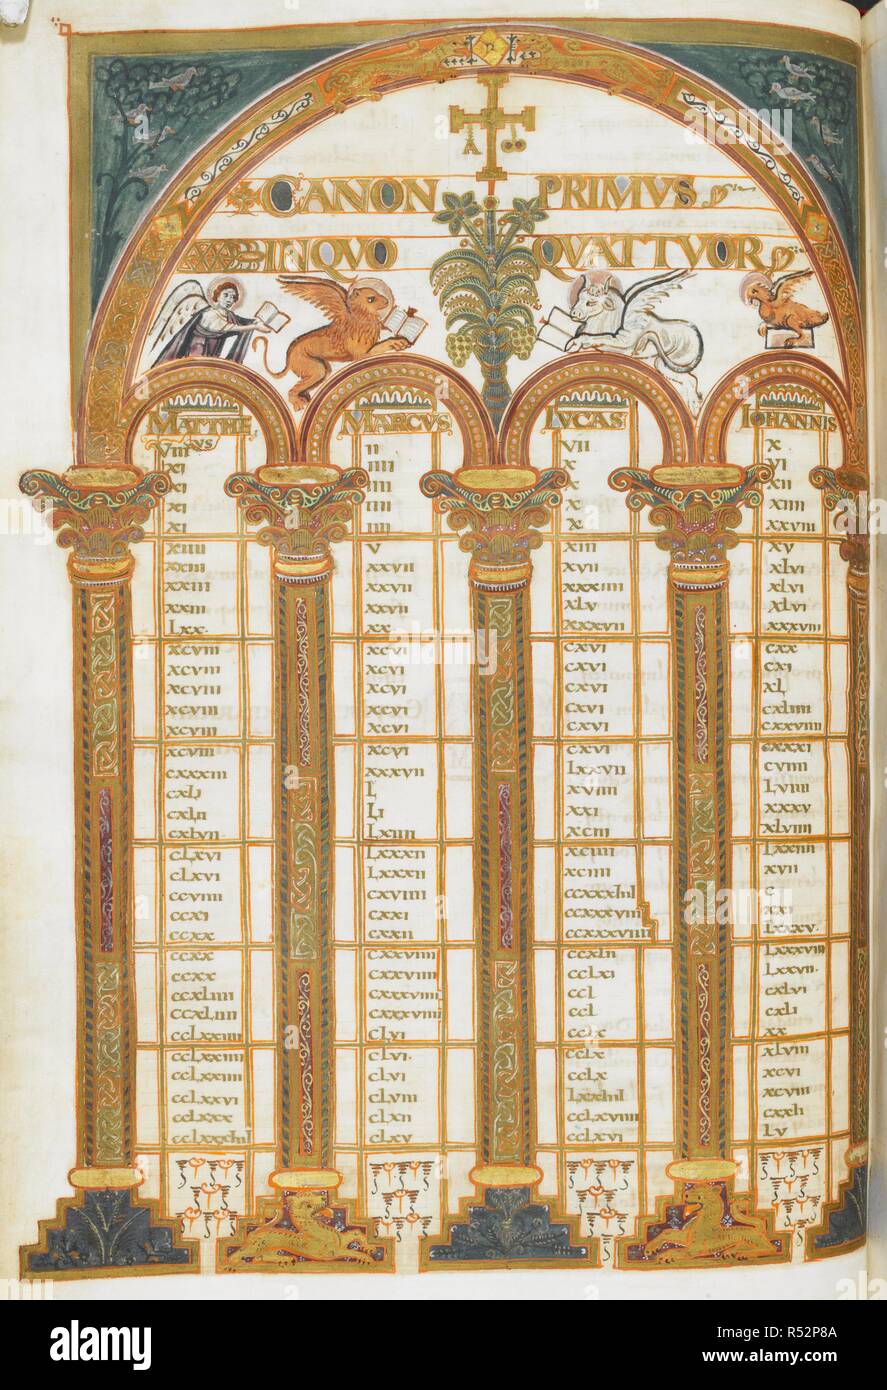 CANON PRIMVS
IN QVO QVATTVOR
MATTHEVS MARCVS LVCAS IOHANNIS
VIII II VII X
XI IIII X VI
XI IIII X XII
XI IIII X XIIII
XI IIII X XXVIII
XIIII V XIII XV
XXIII XXVII XVII XLVI
XXIII XXVII XXXIIII XLVI
XXIII XXVII XLV XLVI
LXX XX XXXVII XXXVIII
XCVIII XCVI CXVI CXX
XCVIII XCVI CXVI CXI
XCVIII XCVI CXVI XL
XCVIII XCVI CXVI CXLIIII
XCVIII XCVI CXVI CXXVIIII
XCVIII XCVI CXVI CXXXI
CXXXIII XXXVII LXXVII CVIIII
CXLI L XVIIII LVIIII
CXLII LI XXI XXXV
CXLVII LXIIII XCIII XLVIIII
CLXVI LXXXII XCIIII LXXIIII
CLXVI LXXXII XCIIII XVII
CCVIIII CXVIIII CCXXXIIII C
CCXI CXXI CCXXXVIII XXI
CCXX CXXII CCXXXVIIII LXXXV
CCXX CXXVIIII CCXLII LXXXVIII
CCXX CXXVIIII CCLXI LXXVII
CCXLIIII CXXXVIIII CCL CXLVI
CCXLIIII CXXXVIIII CCL CXLI
CCLXXIIII CLVI CCLX XX
CCLXXIIII CLVI CCLX XLVIII
CCLXXIIII CLVI CCLX XCVI
CCLXXVI CLVIII LXXIIII XCVIII
CCLXXX CLXII CCLXVIIII CXXII
CCLXXXIIII CLXV CCLXVI LV
alamy
alamy
Image ID: R52P8A
www.alamy.com